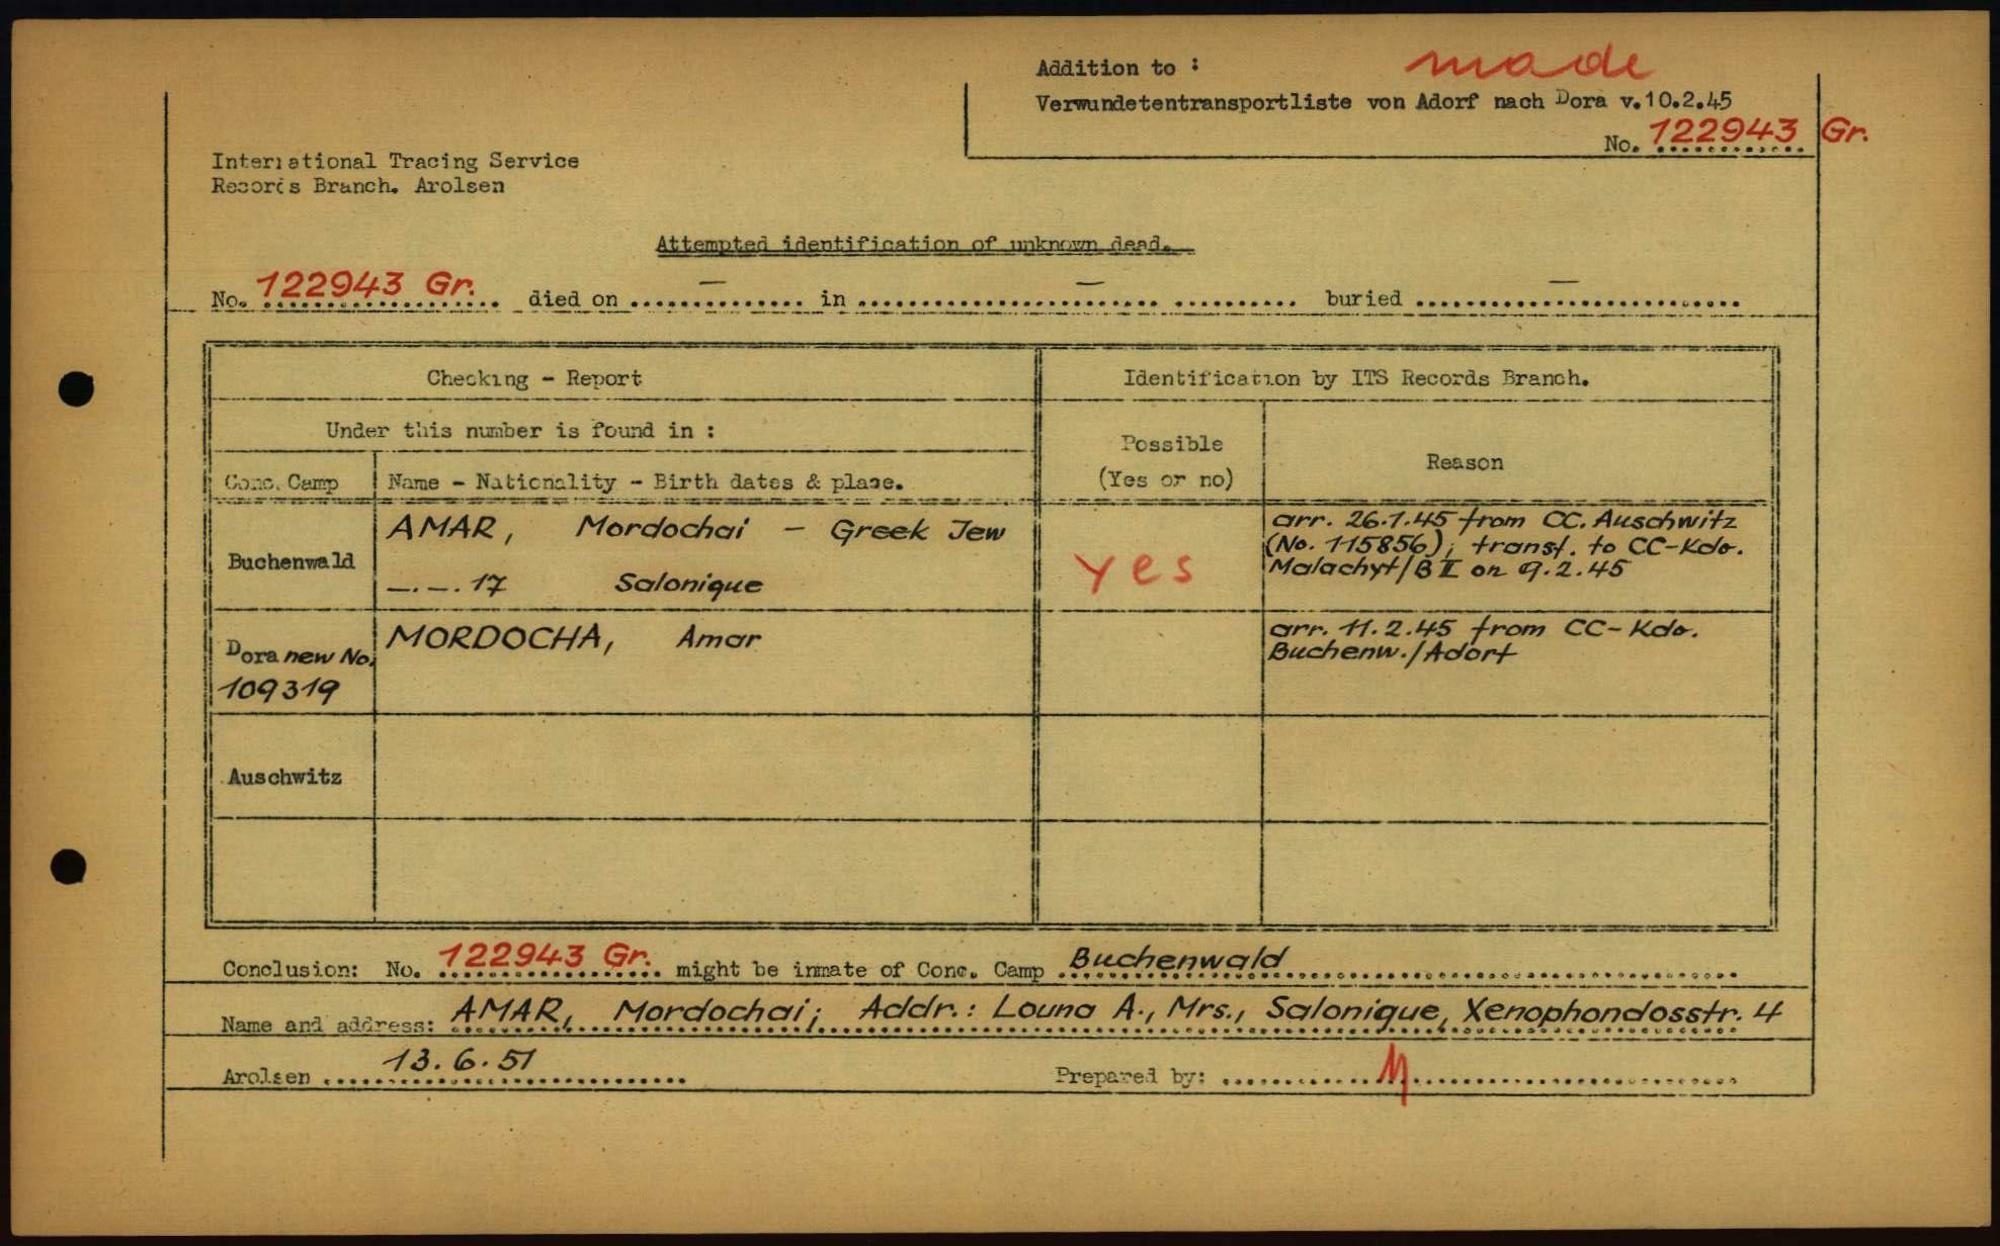 Addition to : made
Verwundetentransportliste von Adorf nach Dora v.10.2.45
No. 122943 Gr.
International Tracing Service
Records Branch. Arolsen
Attempted identification of unknown dead.
No. 122943 Gr. died on — in — buried —
Checking - Report
Identification by ITS Records Branch.
Under this number is found in :
Possible
(Yes or no)
Reason
Conc. Camp
Name - Nationality - Birth dates & place.
Buchenwald
AMAR, Mordochai - Greek Jew
—.—.17 Salonique
yes
arr. 26.1.45 from CC. Auschwitz
(No. 115856); transf. to CC-Kdo.
Malachyt/B II on 9.2.45
Dora new No.
109319
MORDOCHA, Amar
arr. 11.2.45 from CC-Kdo.
Buchenw./Adorf
Auschwitz
Conclusion: No. 122943 Gr. might be inmate of Conc. Camp Buchenwald
Name and address: AMAR, Mordochai; Addr.: Louna A., Mrs., Salonique, Xenophondosstr. 4
Arolsen 13.6.51
Prepared by: